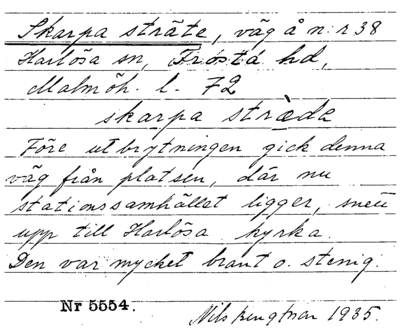 Skarpa sträte, väg å n:r 38
Harlösa sn, Frosta hd,
Malmöh. l. 72
skarpa strädə
Före utbrytningen gick denna
väg från platsen, där nu
stationssamhället ligger, snett
upp till Harlösa kyrka.
Den var mycket brant o. stenig.
Nr 5554.
Nils 1935.